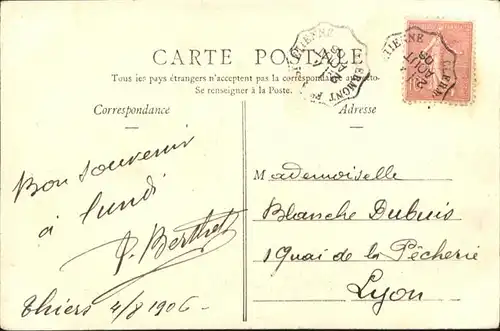 CARTE POSTALE
Tous les pays étrangers n'acceptent pas la correspondance au recto-
Se renseigner à la Poste.
Correspondance
Adresse
Bon souvenir
à lundi
P. Berthet
Thiers 4/8 1906-
Mademoiselle
Blanche Dubuis
1 Quai de la Pêcherie
Lyon